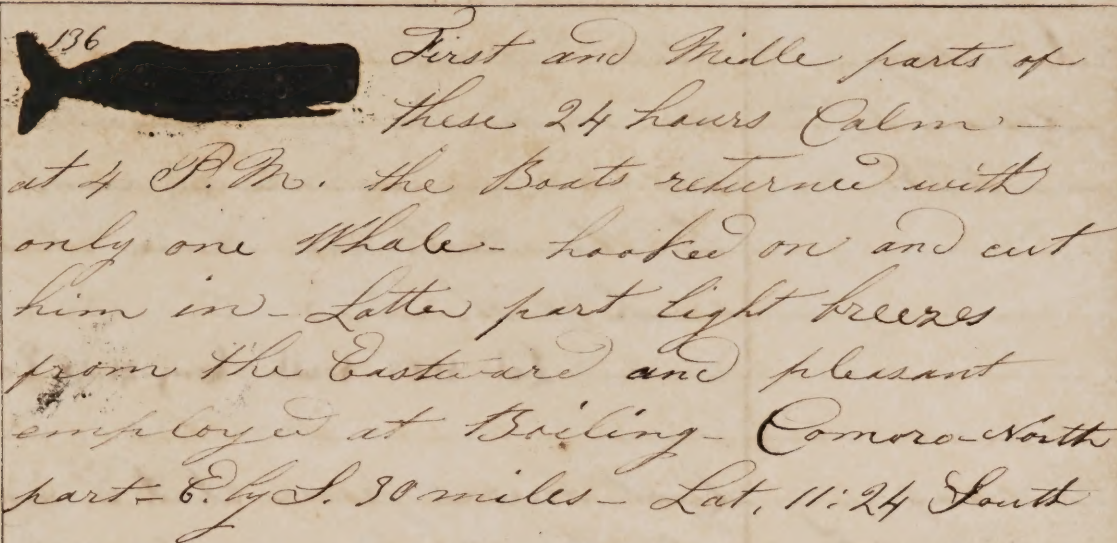 136
First and Midle parts of
these 24 hours Calm -
at 4 P.M. the Boats returned with
only one Whale - hooked on and cut
him in - Latter part light breezes
from the Eastward and pleasant
employed at Boiling - Comoro - North
part - E. by S. 30 miles - Lat. 11:24 South